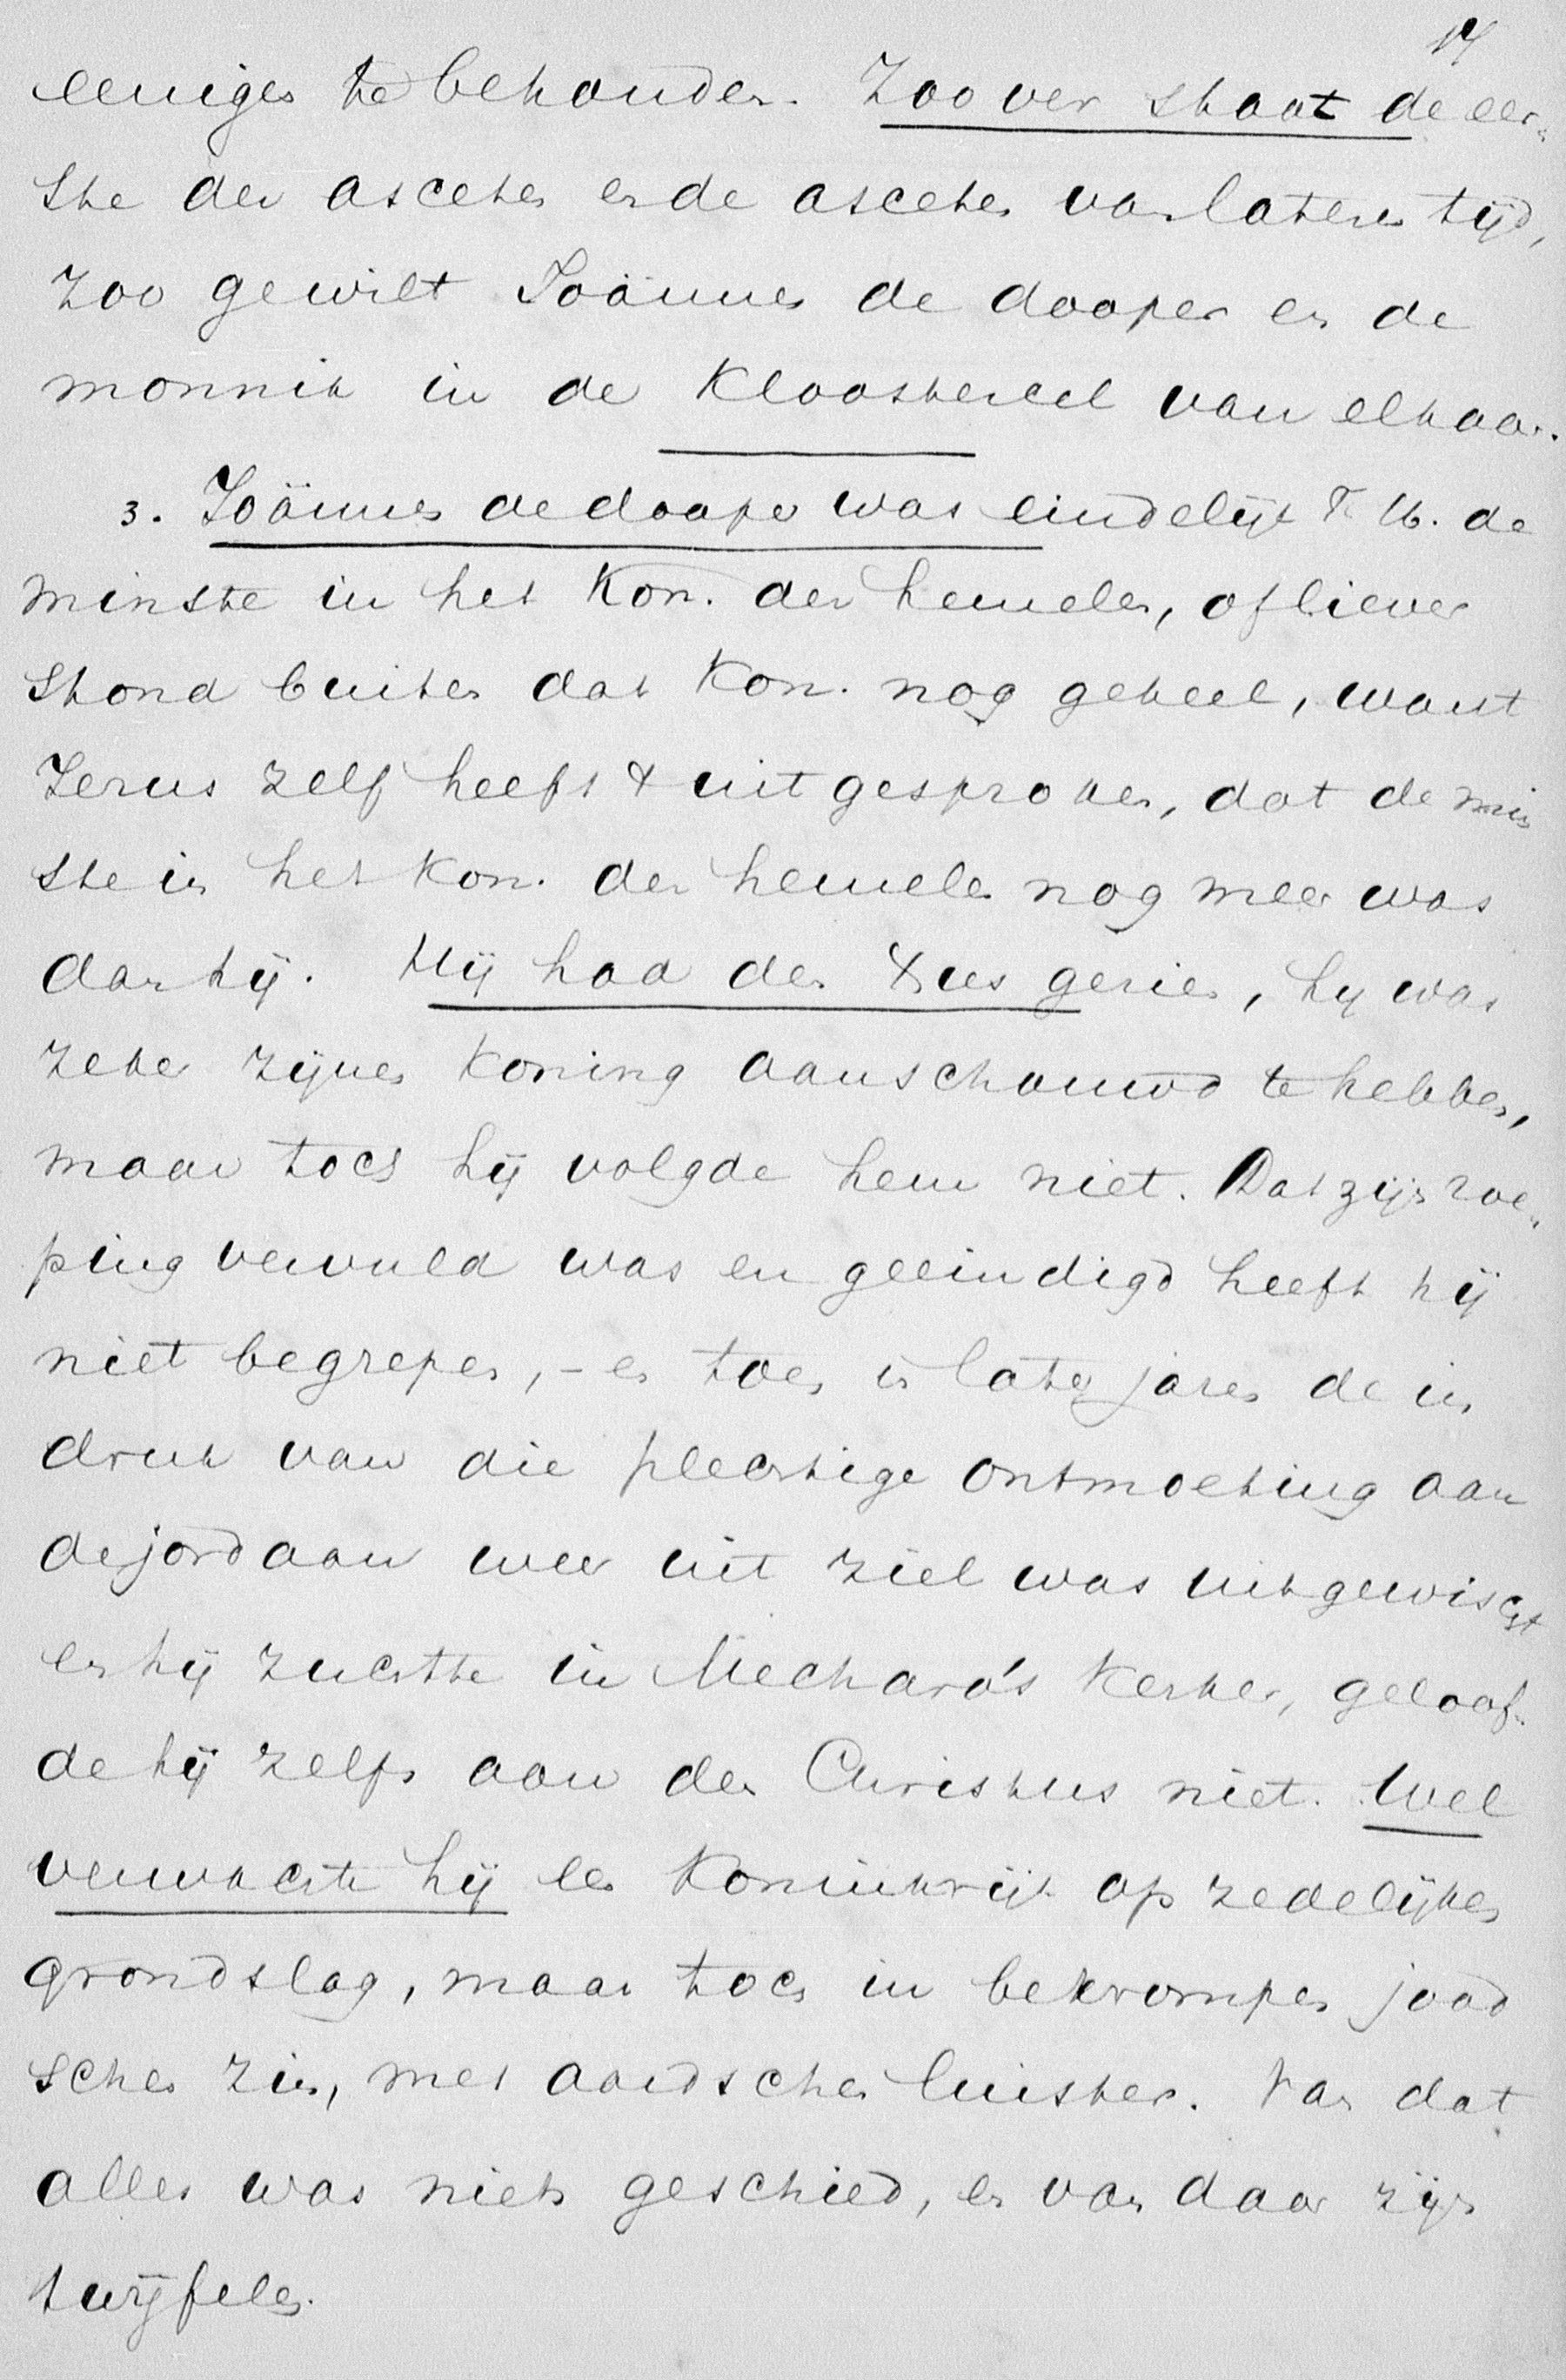 14
eeniges te behouden. Zoo ver staat de eer-
ste der asceten en de asceten van lateren tijd,
zoo gewilt Joännes de dooper en de
monnik in de kloostercel van elkaar.
3. Joännes de dooper was eindelijk T. M. de
minste in het Kon. der hemelen, of liever
stond buiten dat Kon. nog geheel, want
Jezus zelf heeft 't uitgesproken, dat de min
ste in het Kon. der hemelen nog meer was
dan hij. Hij had den Xtus gezien, hij was
zeker zijnen Koning aanschouwd te hebben,
maar toch hij volgde hem niet. Dat zijn roe-
ping vervuld was en geeindigd heeft hij
niet begrepen, - en toen in later jaren de in
druk van die plechtige ontmoeting aan
de jordaan weer uit ziel was uitgewischt
en hij zuchtte in Mecharo's kerker, geloof-
de hij zelfs aan den Christus niet. Wel
verwachte hij een Koninkrijk op zedelijken
grondslag, maar toch in bekrompen jood
schen zin, met aardschen luister. Van dat
alles was niets geschied, en van daar zijn
twijfelen.